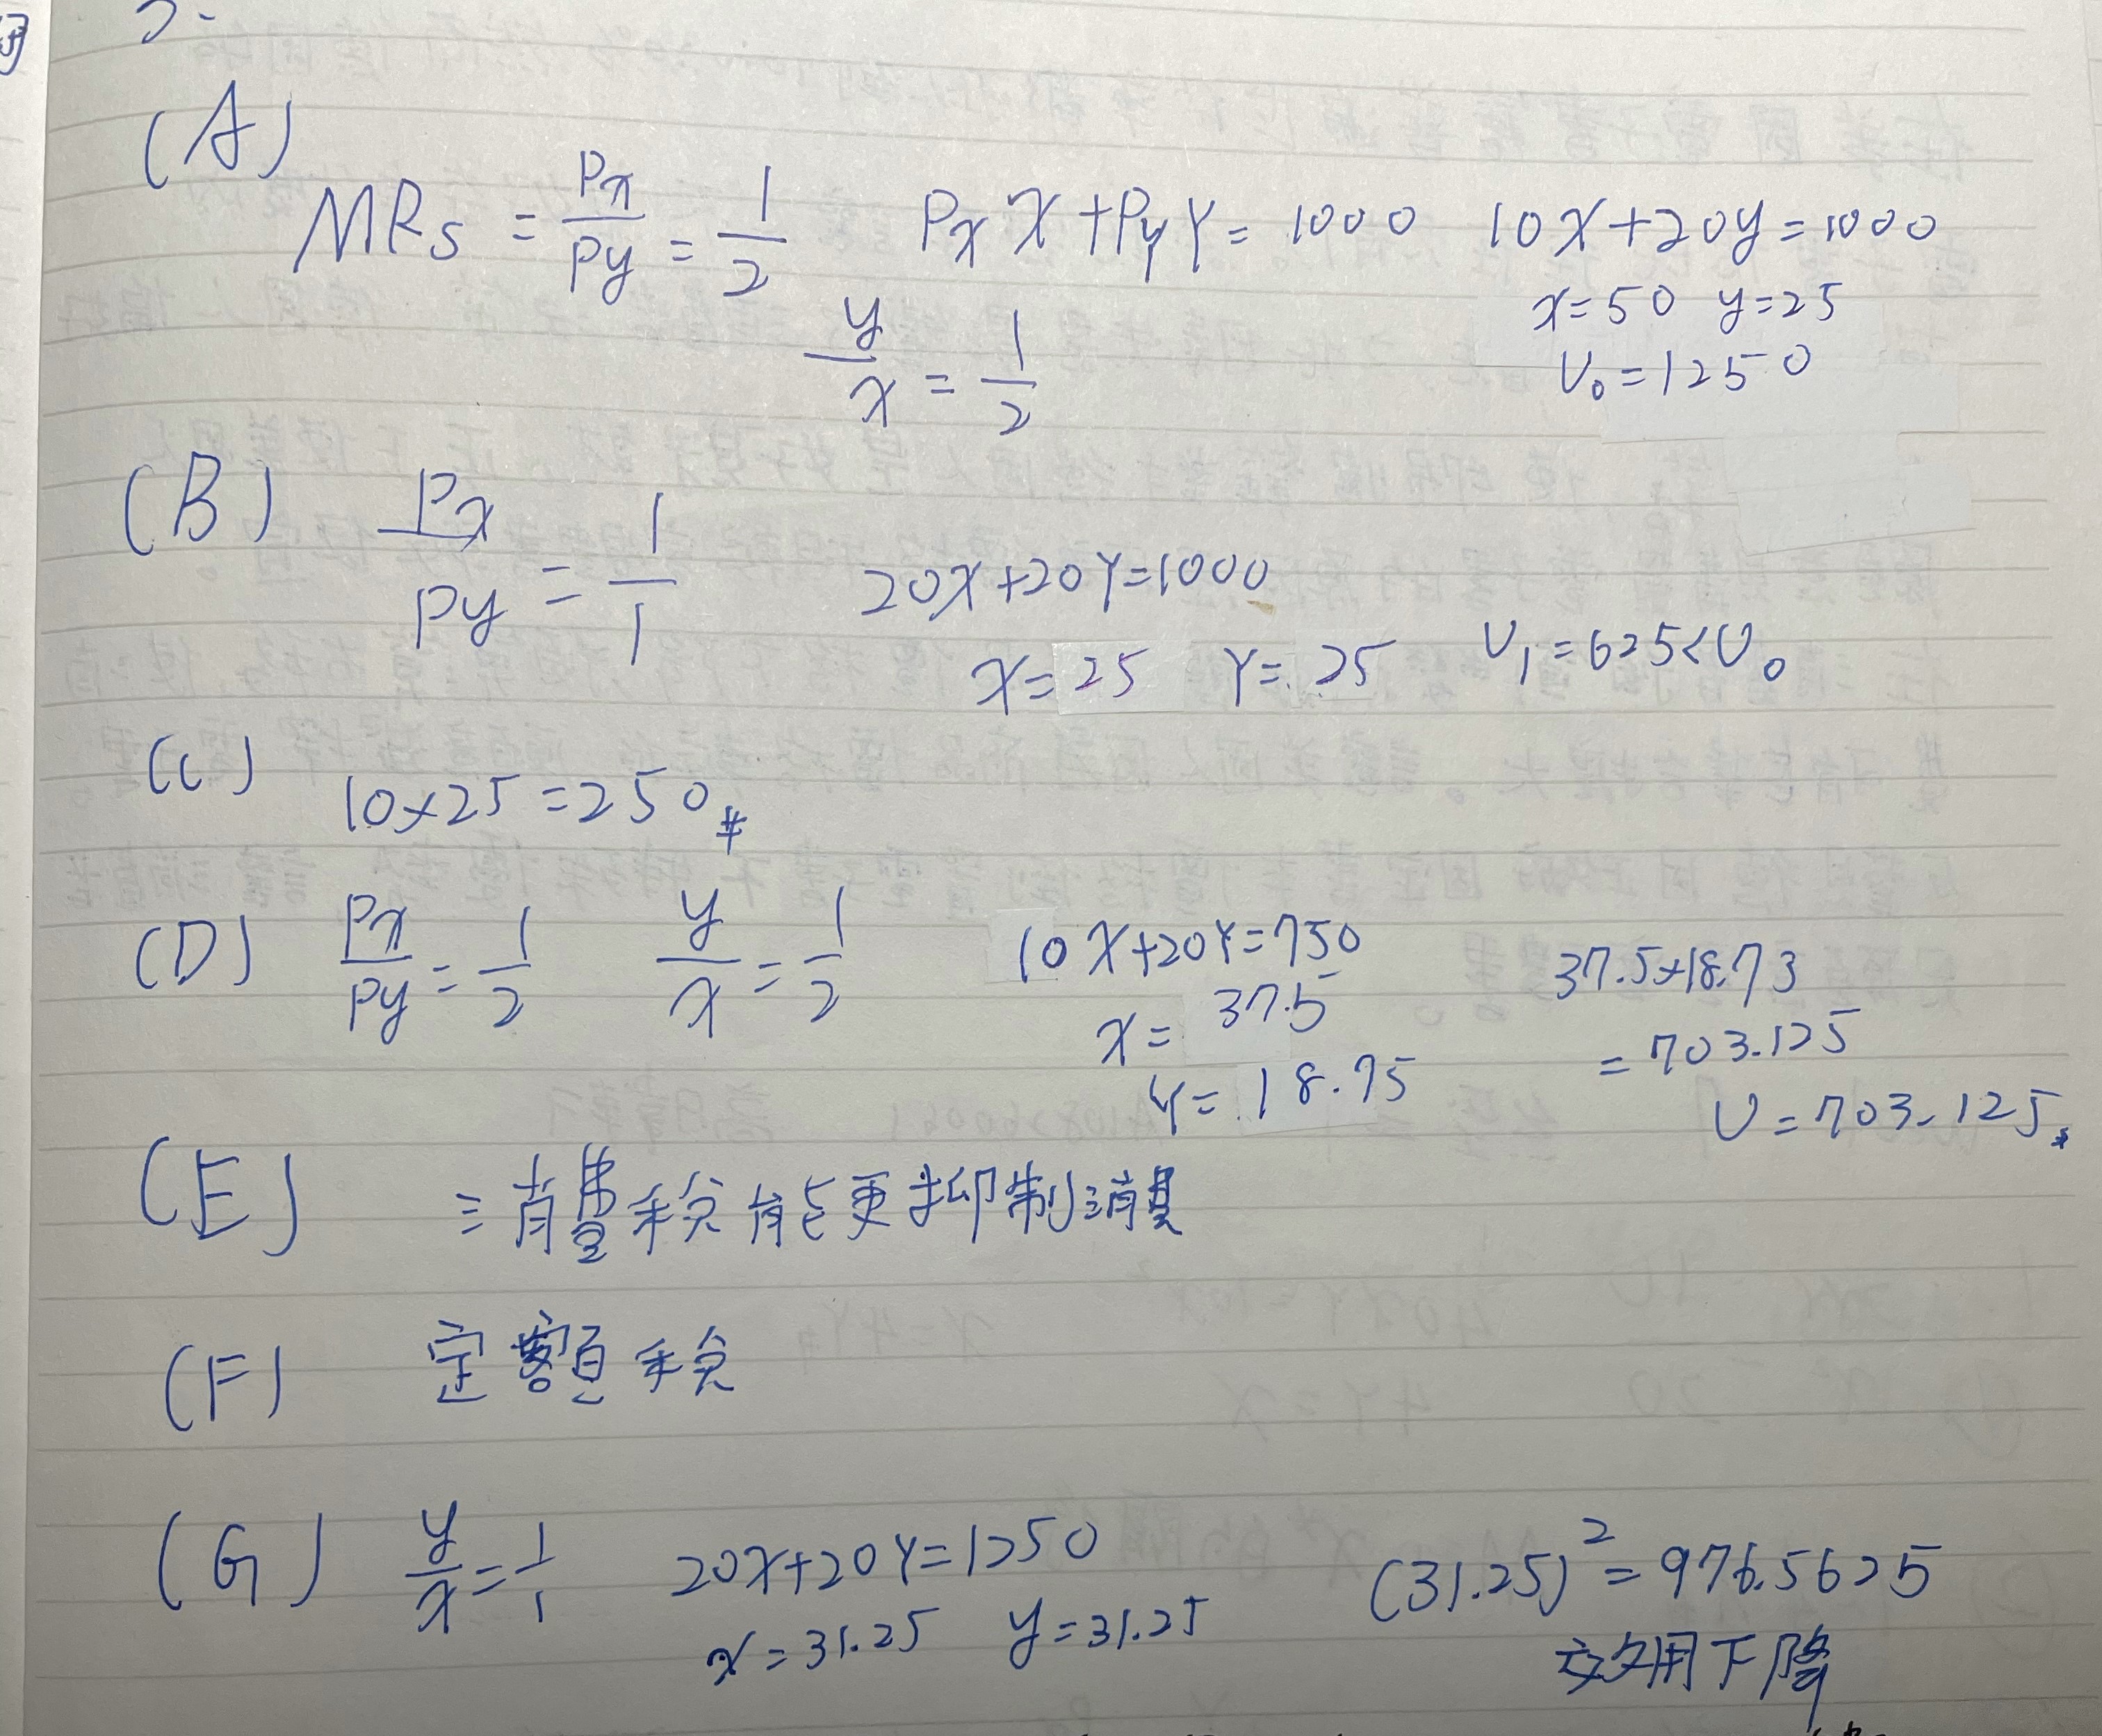 (A)
MRS = Px/Py = 1/2 PxX + PyY = 1000 10x + 20y = 1000
y/x = 1/2 x = 50 y = 25
U₀ = 1250
(B) Px/Py = 1/1 20X + 20Y = 1000
X = 25 Y = 25 U₁ = 625 < U₀
(C) 10×25 = 250#
(D) Px/Py = 1/2 y/x = 1/2 10X + 20Y = 750 37.5×18.73
x = 37.5 = 703.125
Y = 18.75 U = 703.125
(E) 消費稅能更抑制消
(F) 定額稅
(G) y/x = 1/1 20X + 20Y = 1250 (31.25)² = 976.5625
x = 31.25 y = 31.25 效用下降